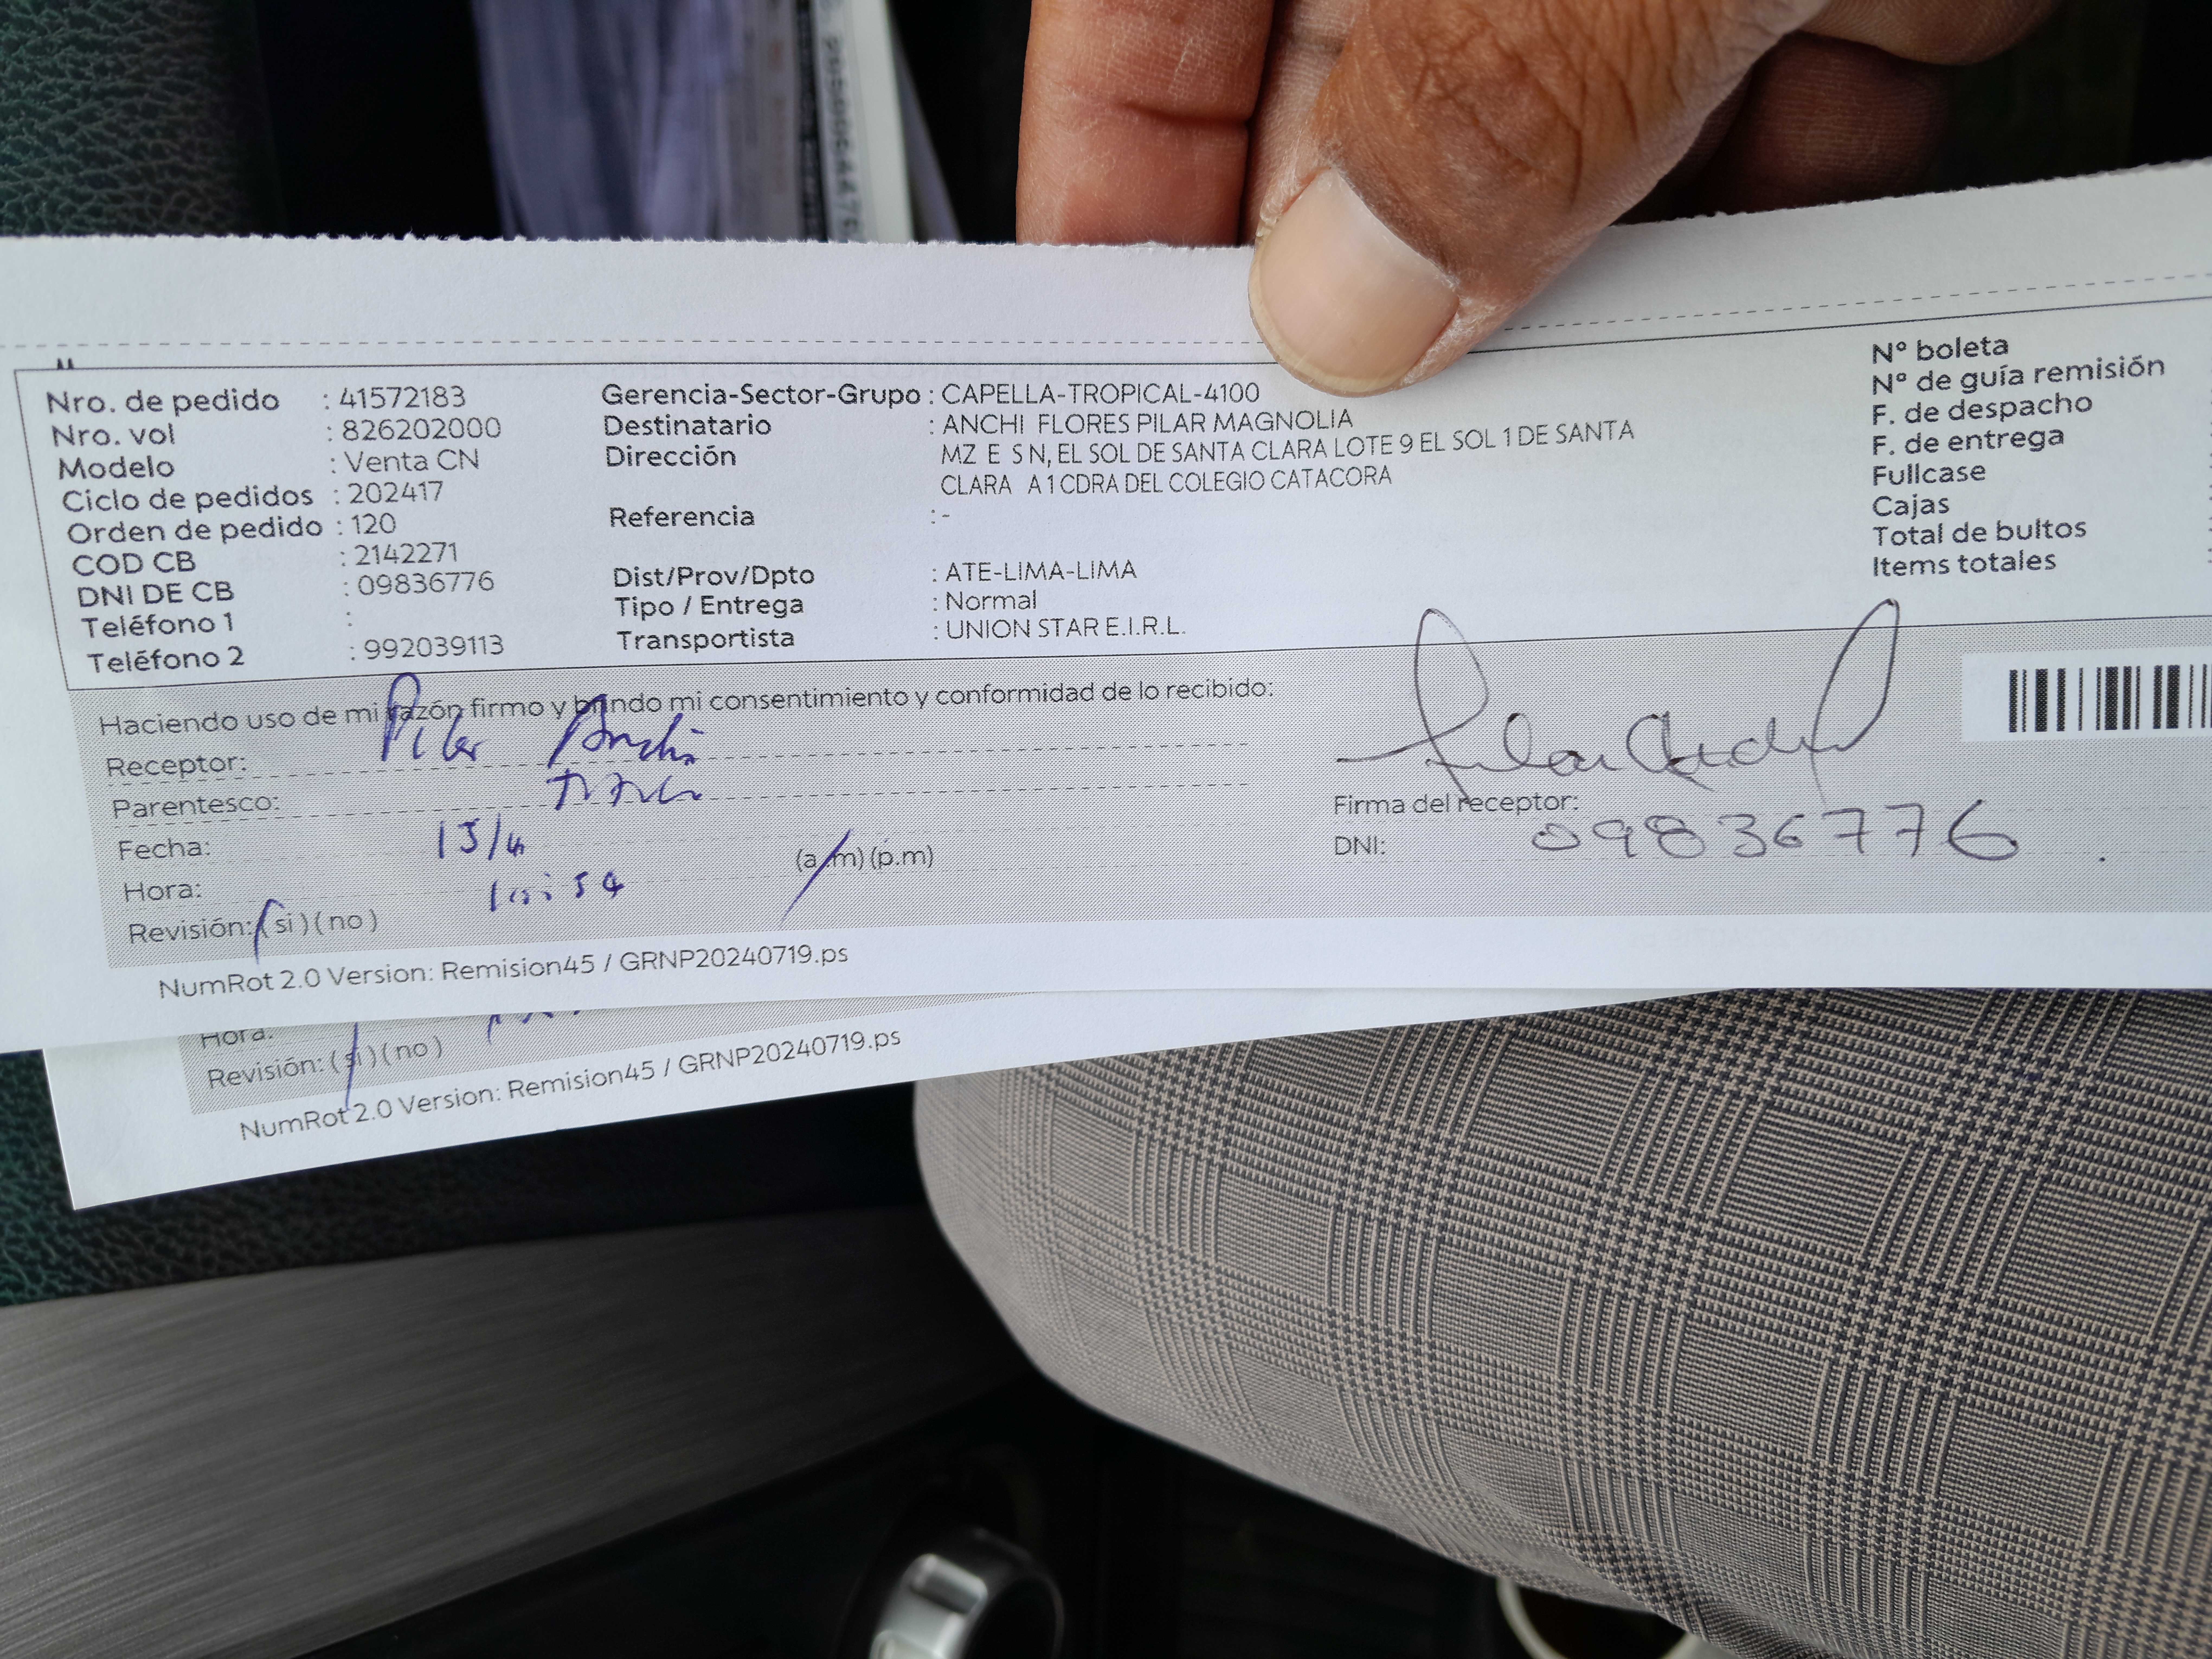 Nro. de pedido : 41572183
Nro. vol : 826202000
Modelo : Venta CN
Ciclo de pedidos : 202417
Orden de pedido : 120
COD CB : 2142271
DNI DE CB : 09836776
Teléfono 1 :
Teléfono 2 : 992039113
Gerencia-Sector-Grupo : CAPELLA-TROPICAL-4100
Destinatario : ANCHI FLORES PILAR MAGNOLIA
Dirección MZ E S N, EL SOL DE SANTA CLARA LOTE 9 EL SOL 1 DE SANTA
CLARA A 1 CDRA DEL COLEGIO CATACORA
Referencia : -
Dist/Prov/Dpto : ATE-LIMA-LIMA
Tipo / Entrega : Normal
Transportista : UNION STAR E.I.R.L.
N° boleta
N° de guía remisión
F. de despacho
F. de entrega
Fullcase
Cajas
Total de bultos
Items totales
Haciendo uso de mi razón firmo y brindo mi consentimiento y conformidad de lo recibido:
Receptor: Pilar Anchi
Parentesco:
Fecha:
Hora: (a.m) (p.m)
Revisión: (si) (no)
Firma del receptor:
DNI: 09836776
NumRot 2.0 Version: Remision45 / GRNP20240719.ps
Hora:
Revisión: (si) (no)
NumRot 2.0 Version: Remision45 / GRNP20240719.ps